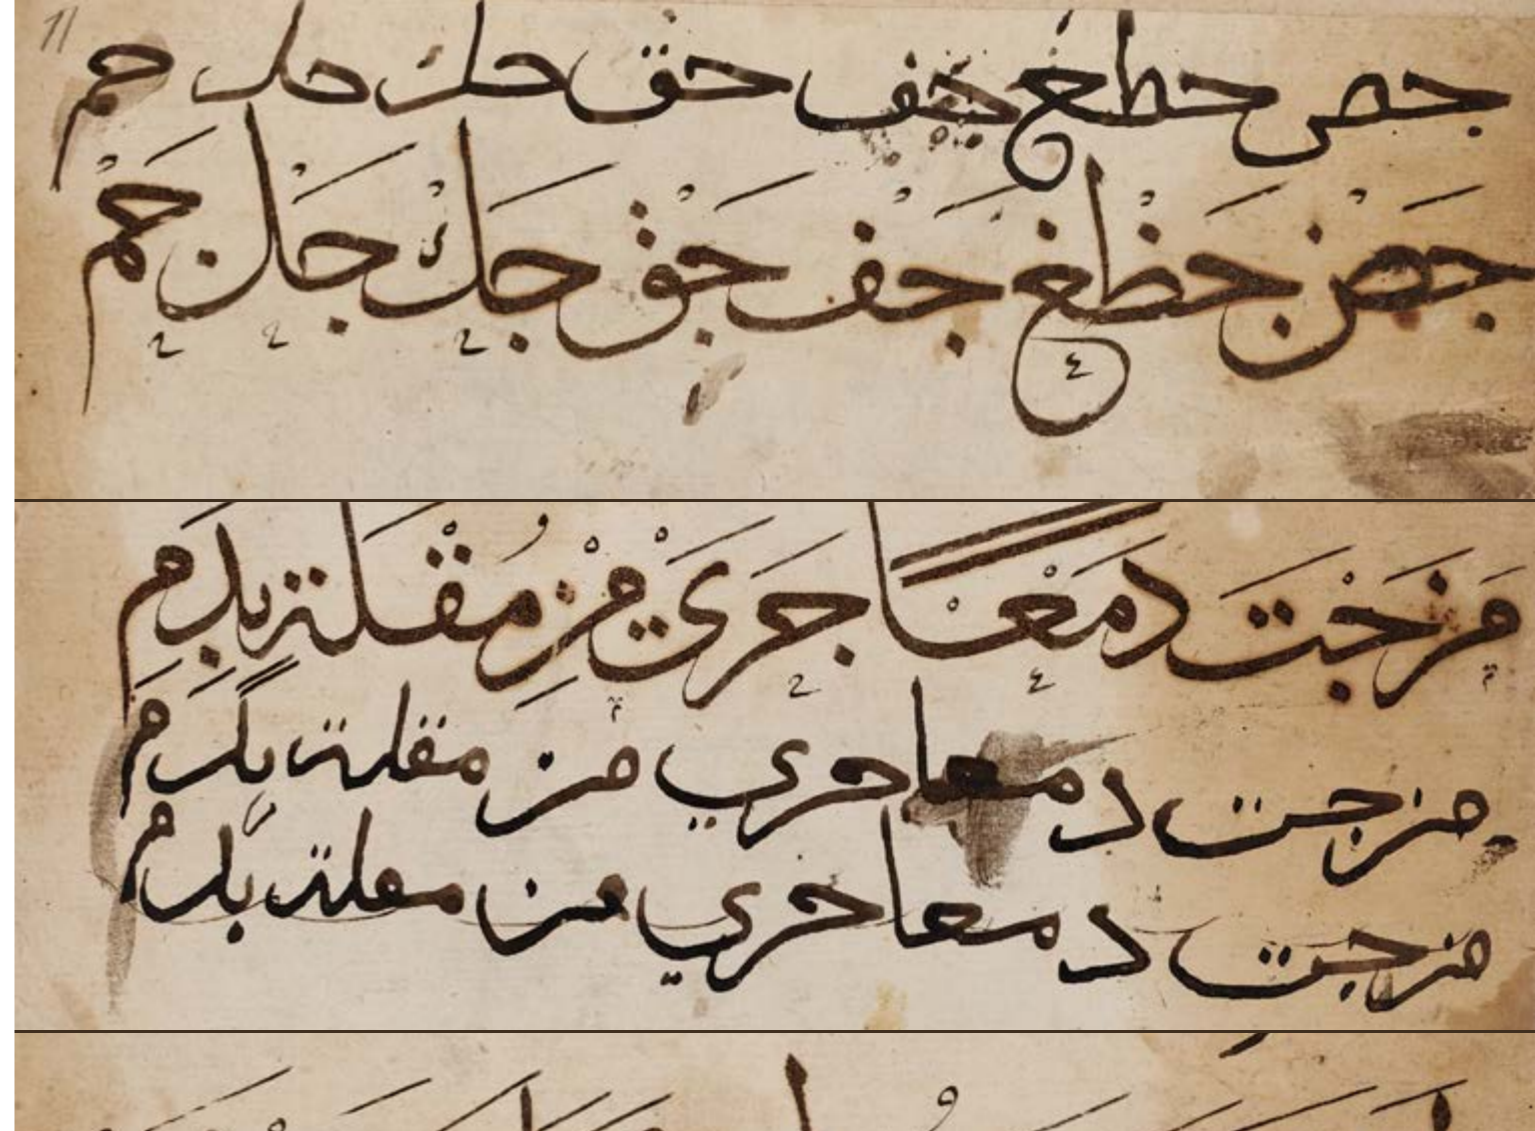 حص حطع حف حق حك حل حم
جَضْ جَظْغ جَفْ جَقْ جَكْ جَلْ جَمْ
مَزَجْتَ دَمْعًا جَرَيْ مِنْ مُقْلَةٍ بِدَمِ
مزجت دمعا جري من مقلة بدم
مزجت دمعا جري من مقلة بدم